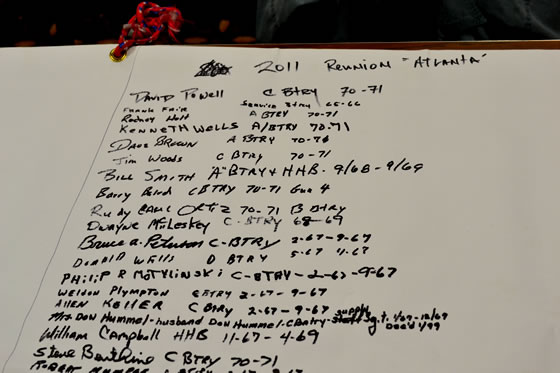 2011 Reunion "Atlanta"
David Powell C Btry 70-71
Frank Fair Service Btry 65-66
Rodney Holt A Btry 70-71
Kenneth Wells A/Btry 70-71
Dave Brown A Btry
Jim Woods C Btry 70-71
Bill Smith A Btry & HHB - 9/68 - 9/69
Barry Baird C Btry 70-71 Gun 4
Rudy Ortiz 70-71 B Btry
Dwayne McLeskey C-Btry 68-69
Bruce A. Peterson C-Btry 2-67-9-67
Donald Wells D Btry
Philip R Motylinski C-Btry-2-67-9-67
Weldon Plympton C Btry 2-67-9-67
Allen Keller C Btry 2-67-9-67
Mrs. Don Hummel-husband Don Hummel-C Batry-Supply Sgt.
William Campbell HHB 11-67-4-69
Steve C Btry 70-71